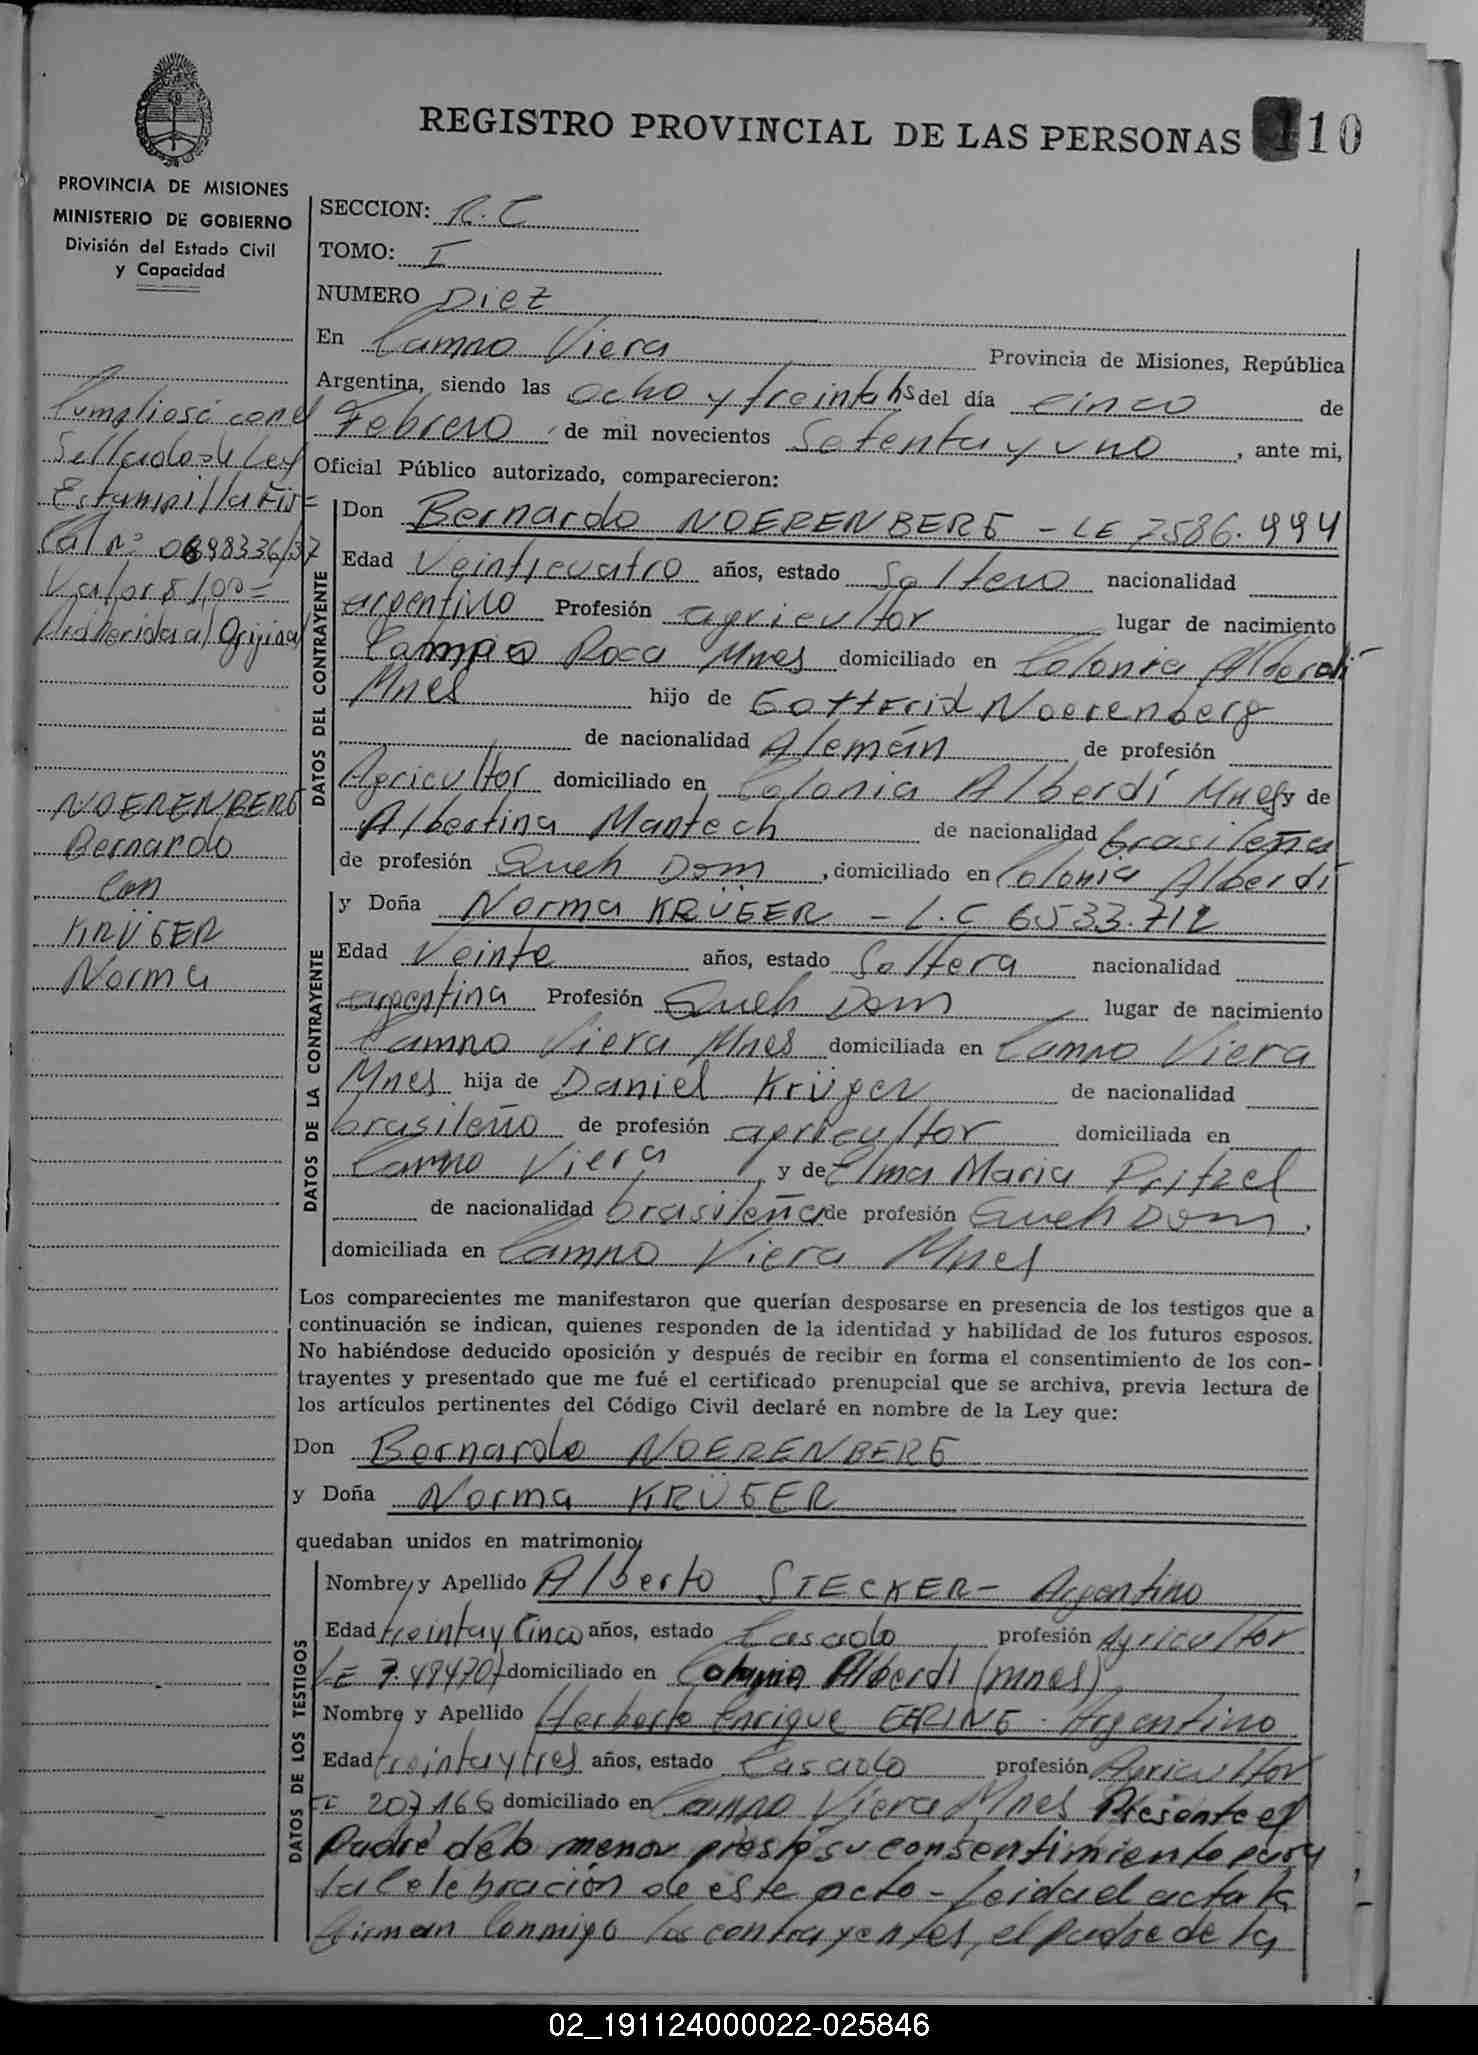 REGISTRO PROVINCIAL DE LAS PERSONAS 110
PROVINCIA DE MISIONES
MINISTERIO DE GOBIERNO
División del Estado Civil
y Capacidad
Cumpliose con el
Sellado de Ley
Estampilla Fis=
cal nº 0698336/37
Valor $ 1,00=
Adherida al Original
NOERENBERG
Bernardo
con
KRÜGER
Norma
SECCION: R.C
TOMO: I
NUMERO Diez
En Campo Viera Provincia de Misiones, República
Argentina, siendo las ocho y treinta hs del día cinco de
Febrero de mil novecientos Setenta y uno, ante mi,
Oficial Público autorizado, comparecieron:
DATOS DEL CONTRAYENTE
Don Bernardo NOERENBERG - LE 7586.994
Edad Veinticuatro años, estado Soltero nacionalidad
argentino Profesión agricultor lugar de nacimiento
Campo Roca Mnes domiciliado en Colonia Alberdi
Mnes hijo de Gottfrid Noerenberg
de nacionalidad Alemán de profesión
Agricultor domiciliado en Colonia Alberdí Mnes y de
Albertina Mantech de nacionalidad brasileña
de profesión Queh Dom, domiciliado en Colonia Alberdí
DATOS DE LA CONTRAYENTE
y Doña Norma KRÜGER - L.C 6533.712
Edad Veinte años, estado Soltera nacionalidad
argentina Profesión Queh Dom lugar de nacimiento
Campo Viera Mnes domiciliada en Campo Viera
Mnes hija de Daniel Krüger de nacionalidad
brasileño de profesión agricultor domiciliada en
Campo Viera y de Elma Maria Pritzel
de nacionalidad brasileña de profesión Queh Dom,
domiciliada en Campo Viera Mnes
Los comparecientes me manifestaron que querían desposarse en presencia de los testigos que a
continuación se indican, quienes responden de la identidad y habilidad de los futuros esposos.
No habiéndose deducido oposición y después de recibir en forma el consentimiento de los con-
trayentes y presentado que me fué el certificado prenupcial que se archiva, previa lectura de
los artículos pertinentes del Código Civil declaré en nombre de la Ley que:
Don Bernardo NOERENBERG
y Doña Norma KRÜGER
quedaban unidos en matrimonio,
DATOS DE LOS TESTIGOS
Nombre y Apellido Alberto STECKER - Argentino
Edad treinta y Cinco años, estado Casado profesión Agricultor
LE 7.48470 domiciliado en Colonia Alberdi (mnes)
Nombre y Apellido Herberto Enrique GERING - Argentino
Edad treinta y tres años, estado Casado profesión Agricultor
207166 domiciliado en Campo Viera Mnes Presente el
Padre de la menor presto su consentimiento para
la celebración de este acto - Leida el acta la
firman Conmigo los contrayentes, el padre de la
02_191124000022-025846